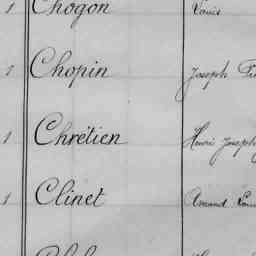 1 Chogon Louis
1 Chopin Joseph
1 Chrétien Henri Joseph
1 Clinet Amand